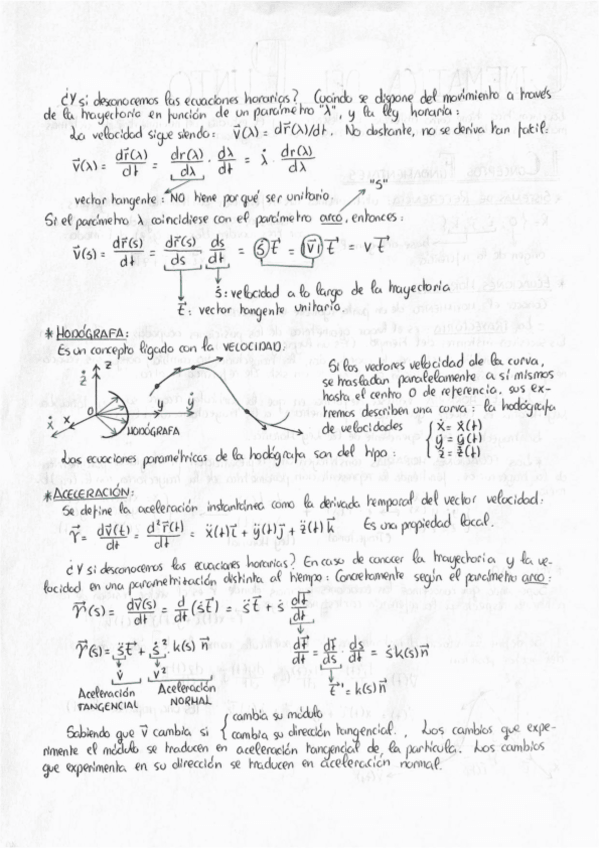 ¿Y si desconocemos las ecuaciones horarias? Cuando se dispone del movimiento a través
de la trayectoria en función de un parámetro "λ", y la ley horaria:
La velocidad sigue siendo: v⃗(λ) = dr⃗(λ)/dt. No obstante, no se deriva tan fácil:
v⃗(λ) = dr⃗(λ)/dt = dr(λ)/dλ · dλ/dt = λ̇ · dr(λ)/dλ
vector tangente: NO tiene por qué ser unitario. "S"
Si el parámetro λ coincidiese con el parámetro arco, entonces:
v⃗(s) = dr⃗(s)/dt = dr⃗(s)/ds ds/dt = ṡ t⃗ = |v⃗| t⃗ = v t⃗
ṡ: velocidad a lo largo de la trayectoria
t⃗: vector tangente unitario.
* HODÓGRAFA:
Es un concepto ligado con la VELOCIDAD:
Si los vectores velocidad de la curva,
se trasladan paralelamente a sí mismos
hasta el centro O de referencia, sus ex-
tremos describen una curva: la hodógrafa
de velocidades
ż z
O y ẏ
ẋ x
HODÓGRAFA
Las ecuaciones paramétricas de la hodógrafa son del tipo: { ẋ = ẋ(t)
ẏ = ẏ(t)
ż = ż(t)
* ACELERACIÓN:
Se define la aceleración instantánea como la derivada temporal del vector velocidad:
γ⃗ = dv⃗(t)/dt = d²r⃗(t)/dt = ẍ(t)i⃗ + ÿ(t)j⃗ + z̈(t)k⃗ Es una propiedad local.
¿Y si desconocemos las ecuaciones horarias? En caso de conocer la trayectoria y la ve-
locidad en una parametrización distinta al tiempo: Concretamente según el parámetro arco:
γ⃗(s) = dv⃗(s)/dt = d/dt (ṡt⃗) = s̈ t⃗ + ṡ dt⃗/dt
γ⃗(s) = s̈ t⃗ + ṡ² · k(s) n⃗
dt⃗/dt = dt⃗/ds ds/dt = ṡ k(s) n⃗
v̇ v²
t⃗' = k(s) n⃗
Aceleración TANGENCIAL
Aceleración NORMAL
Sabiendo que v⃗ cambia si { cambia su módulo
cambia su dirección tangencial. , Los cambios que expe-
rimente el módulo se traducen en aceleración tangencial de la partícula. Los cambios
que experimenta en su dirección se traducen en aceleración normal.